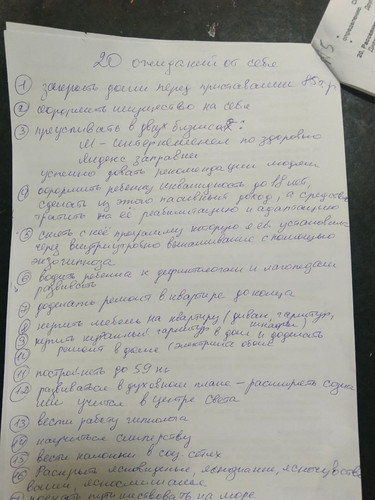 20 ожиданий от себя
1 закрыть долги перед приставами 85 т.р
2 оформить имущество на себя
3 преуспевать в двух бизнесах:
М - Интернешенел по здоровью
Яндекс заправки
успешно давать рекомендации людям
4 оформить ребенку инвалидность до 18 лет,
сделать из этого пассивный доход, а средства
тратить на её реабилитацию и адаптацию
5 снять с неё программу которую я ей установила
через внутриутробно вынашивание с помощью
экзогипноза
6 водить ребенка к дефектологам и логопедам
развивать
7 доделать ремонт в квартире до конца
8 купить мебель на квартиру (диван, гарнитур,
шкафы)
9 купить кухонный гарнитур в дом и доделать
10 ремонт в доме (электрика обои
11 построить до 59 кг
12 развиваться в духовном плане - расширять созна
ние учится в центре света
13 вести работу гипнолога
14 научиться
15 вести колонки в соц. сетях
16 Раскрыть ясновидение, яснознание, ясночувство
вание, яснослышание
путешествовать на море
20. Расска